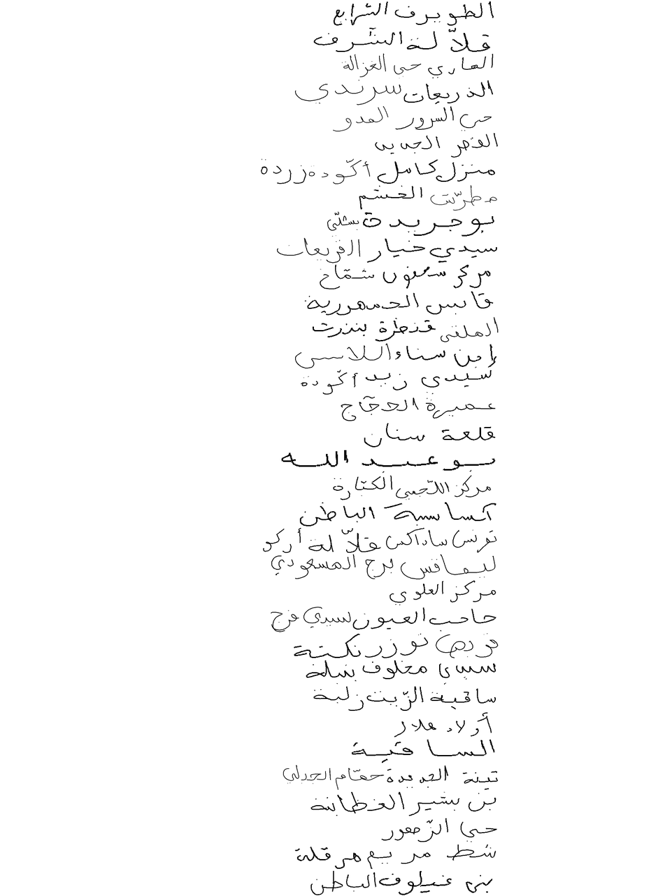 الطويرف الشرايع
قلاّلة الشرف
الهاري حي الغزالة
الذريعات سرندي
حي السرور العدو
القصر الجديد
منزل كامل أكّودة زردة
مطرّيت الغشم
بو جريدة
سيدي خيار القريعات
مركز سحنون شمّاخ
قابس الجمهورية
قنطرة بنزرت
ابن سناء اللاسى
سيدي زيد أكّودة
عميرة الحجّاج
قلعة سنان
بو عبد الله
مركز اللّجمي الكتارة
الباطن
تونس ساداكس قلاّلة أركو
ليمافس برج المسعودي
مركز العلوي
حاجب العيون سيدي فرج
توزر نكتة
سيدي مخلوف
ساقية الزّيت زلبة
أولاد
الساقية
تينة الجديدة حمّام
بن بشير القطانية
حي الزّهور
شط مريم هرقلة
بني غيلوف الباطن